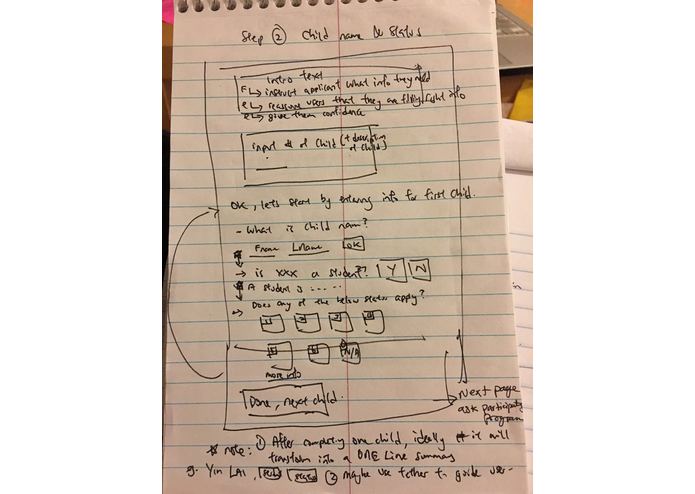 Step ② Child name & Status
Intro text
↳ instruct applicant what info they need
↳ reassure users that they are filling right info
↳ give them confidence
input # of child (+ description of child)
OK, lets start by entering info for first child.
- What is child name?
Fname Lname OK
→ is xxx a student? Y N
A student is ......
→ Does any of the below status apply?
1 2 3 4
5 6 N/A
more info
Done, next child.
Next page
ask participating
program
* note: ① After completing one child, ideally it will
transform into a ONE Line summary
eg. Yin LAI,
② maybe use tether to guide user -
in